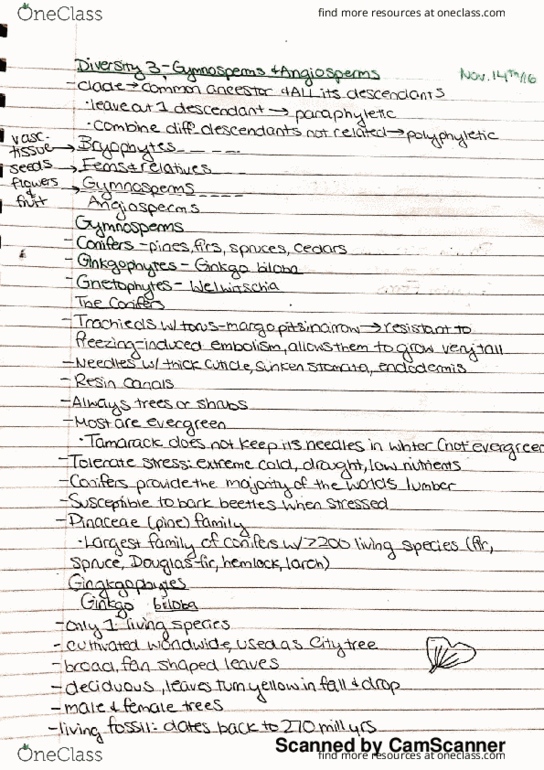 OneClass
find more resources at oneclass.com
Diversity 3 - Gymnosperms & Angiosperms Nov. 14th/16
- Clade → common ancestor & ALL its descendants
· leave out 1 descendant → paraphyletic
· Combine diff. descendants not related → polyphyletic
vasc. tissue → Bryophytes
seeds → Ferns & relatives
flowers & fruit → Gymnosperms
Angiosperms
Gymnosperms
- Conifers - pines, firs, spruces, cedars
- Ginkgophytes - Ginkgo biloba
- Gnetophytes - Welwitschia
The Conifers
- Trachieds w/ torus-margo pits in arrow → resistant to
freezing-induced embolism, allows them to grow very tall
- Needles w/ thick cuticle, sunken stomata, endodermis
- Resin canals
- Always trees or shrubs
- Most are evergreen
· Tamarack does not keep its needles in winter (not evergreen
- Tolerate stress: extreme cold, drought, low nutrients
- Conifers provide the majority of the worlds lumber
- Susceptible to bark beetles when stressed
- Pinaceae (pine) family
· Largest family of conifers w/ >200 living species (fir,
spruce, Douglas-fir, hemlock, larch)
Gingkgophytes
Ginkgo biloba
- only 1 living species
- cultivated worldwide, used as city tree
- broad, fan shaped leaves
- deciduous, leaves turn yellow in fall & drop
- male & female trees
- living fossil: dates back to 270 mill yrs
Scanned by CamScanner
OneClass
find more resources at oneclass.com